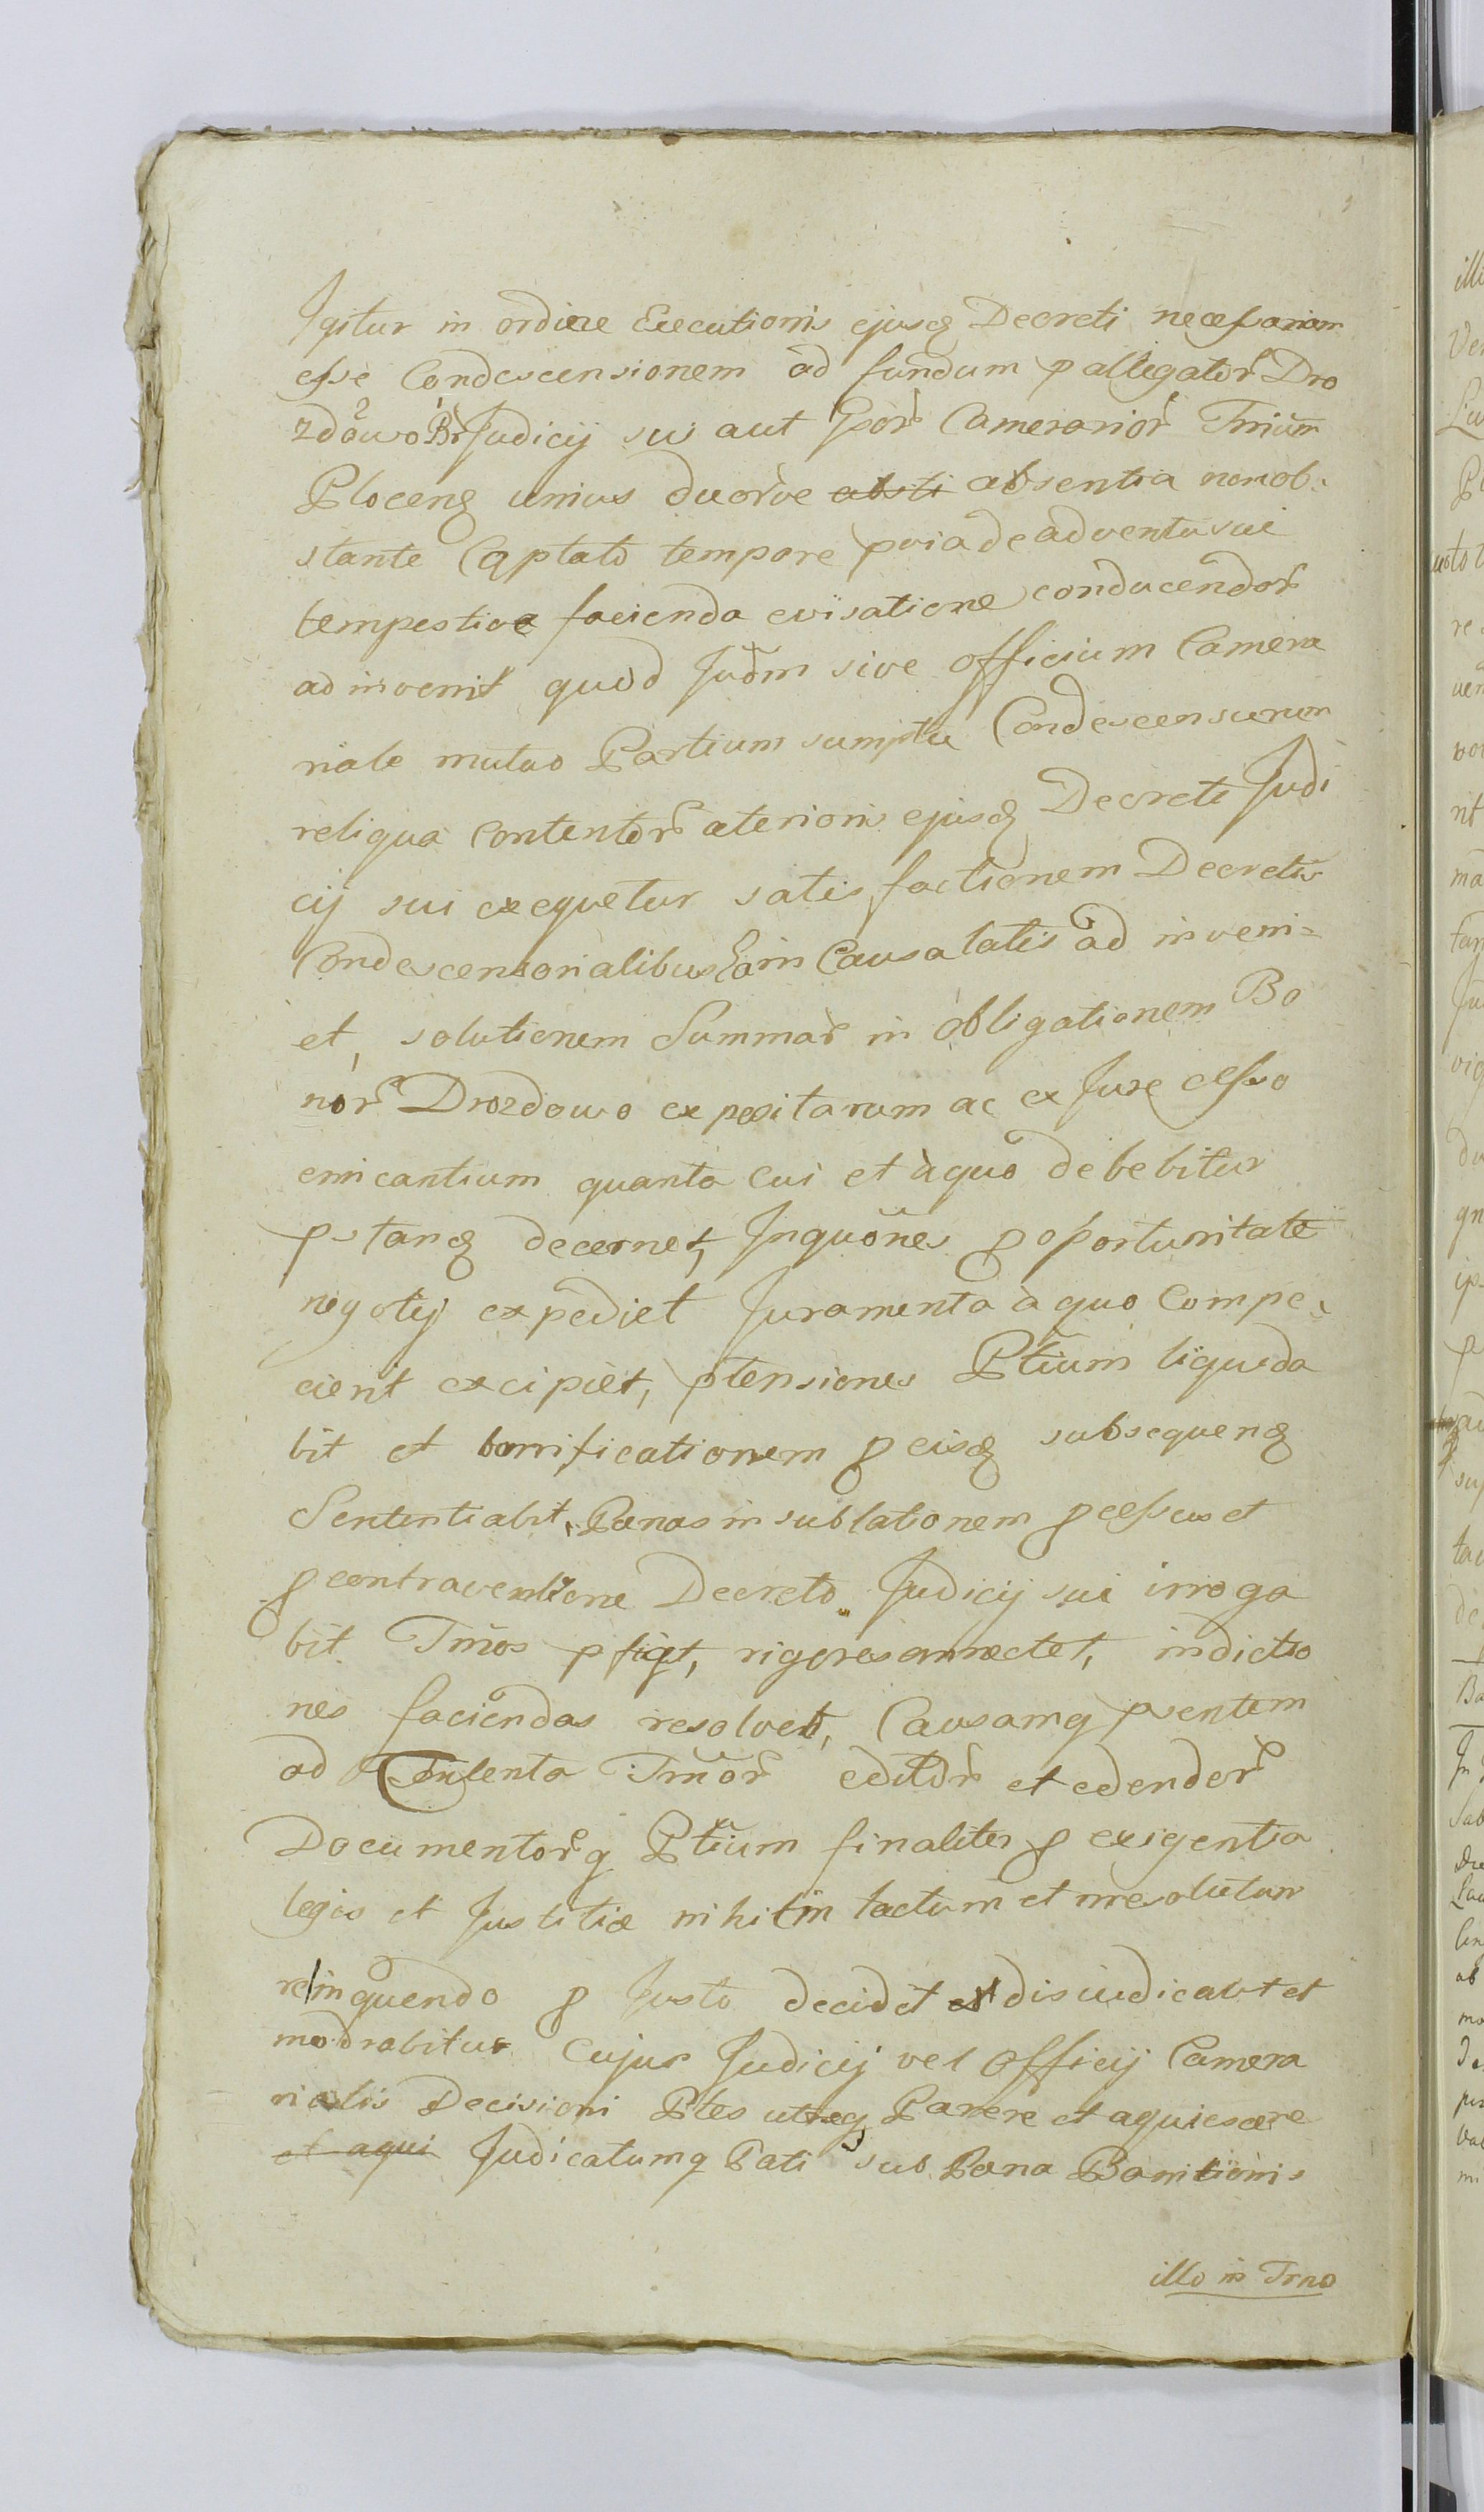 Igitur in ordine Executionis ejusq Decreti necessariam
esse Condescensionem ad fundum pallegator Dro
zdowo Br Judicij sui aut Ipor Camerarior Trium
Ploceng unius duorve absti absentia non ob:
stante Captato tempore pvia de adventu sui
tempestive facienda avisatione conducendor
ad invenit quod Judm sive officium Camera
riale mutuo Partium sumptu Condescensurum
reliqua Contentor aterioris ejusq Decreti Judi
cij sui exequetur satis factionem Decretis
Condescensorialibus in Causa latis ad inveni=
et, solutionem Summar in obligationem Bo
nor Drozdowo expositarum ac ex Jure cesso
emicantium quanta cui et a quo debebitur
pstanq decernet, Inquones p oportunitate
negotij expediet Juramenta a quo Compe:
cient excipiet, ptensiones Ptium liquida
bit et bonificationem p eisq subsequenq
Sententiabit, Pœnas in sublationem pcessus et
p contraventione Decreto Judicij sui irroga
bit Tmos pfiget, rigores annectet, indictio
nes faciendas resolvet, Causamq psentem
ad Contenta Tmor editor et edendor
Documentorq Ptium finaliter p exigentia
legis et Justitiæ nihil in tactum et irresolutum
relinquendo p Justo decidet et disiudicabit et
modrabitur Cujus Judicij vel Officij Camera
rialis Decisioni Ptes utræq Parere et aquiescere
et aqui Judicatumq Pati sub Pœna Banitionis
illo in Trno